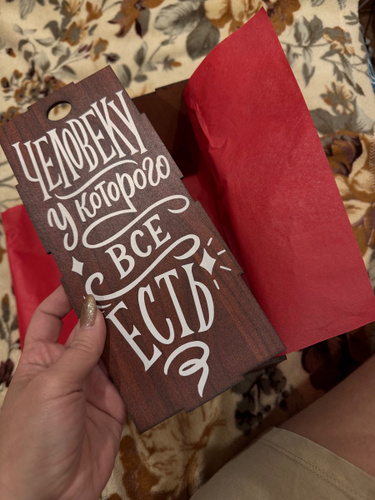 ЧЕЛОВЕКУ
у которого
ВСЕ
ЕСТЬ